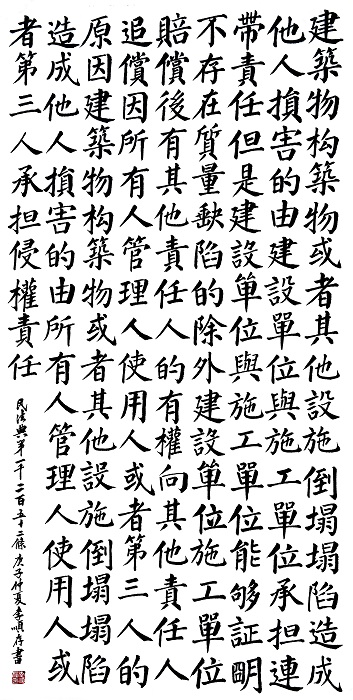 建築物构築物或者其他設施倒塌塌陷造成
他人損害的由建設單位與施工單位承担連
帶責任但是建設單位與施工單位能够証明
不存在質量缺陷的除外建設單位施工單位
賠償後有其他責任人的有權向其他責任人
追償因所有人管理人使用人或者第三人
原因建築物构築物或者其他設施倒塌塌陷
造成他人損害的由所有人管理人使用人或
者第三人承担侵權責任
民法典第一千二百五十二條庚子仲夏李順存書